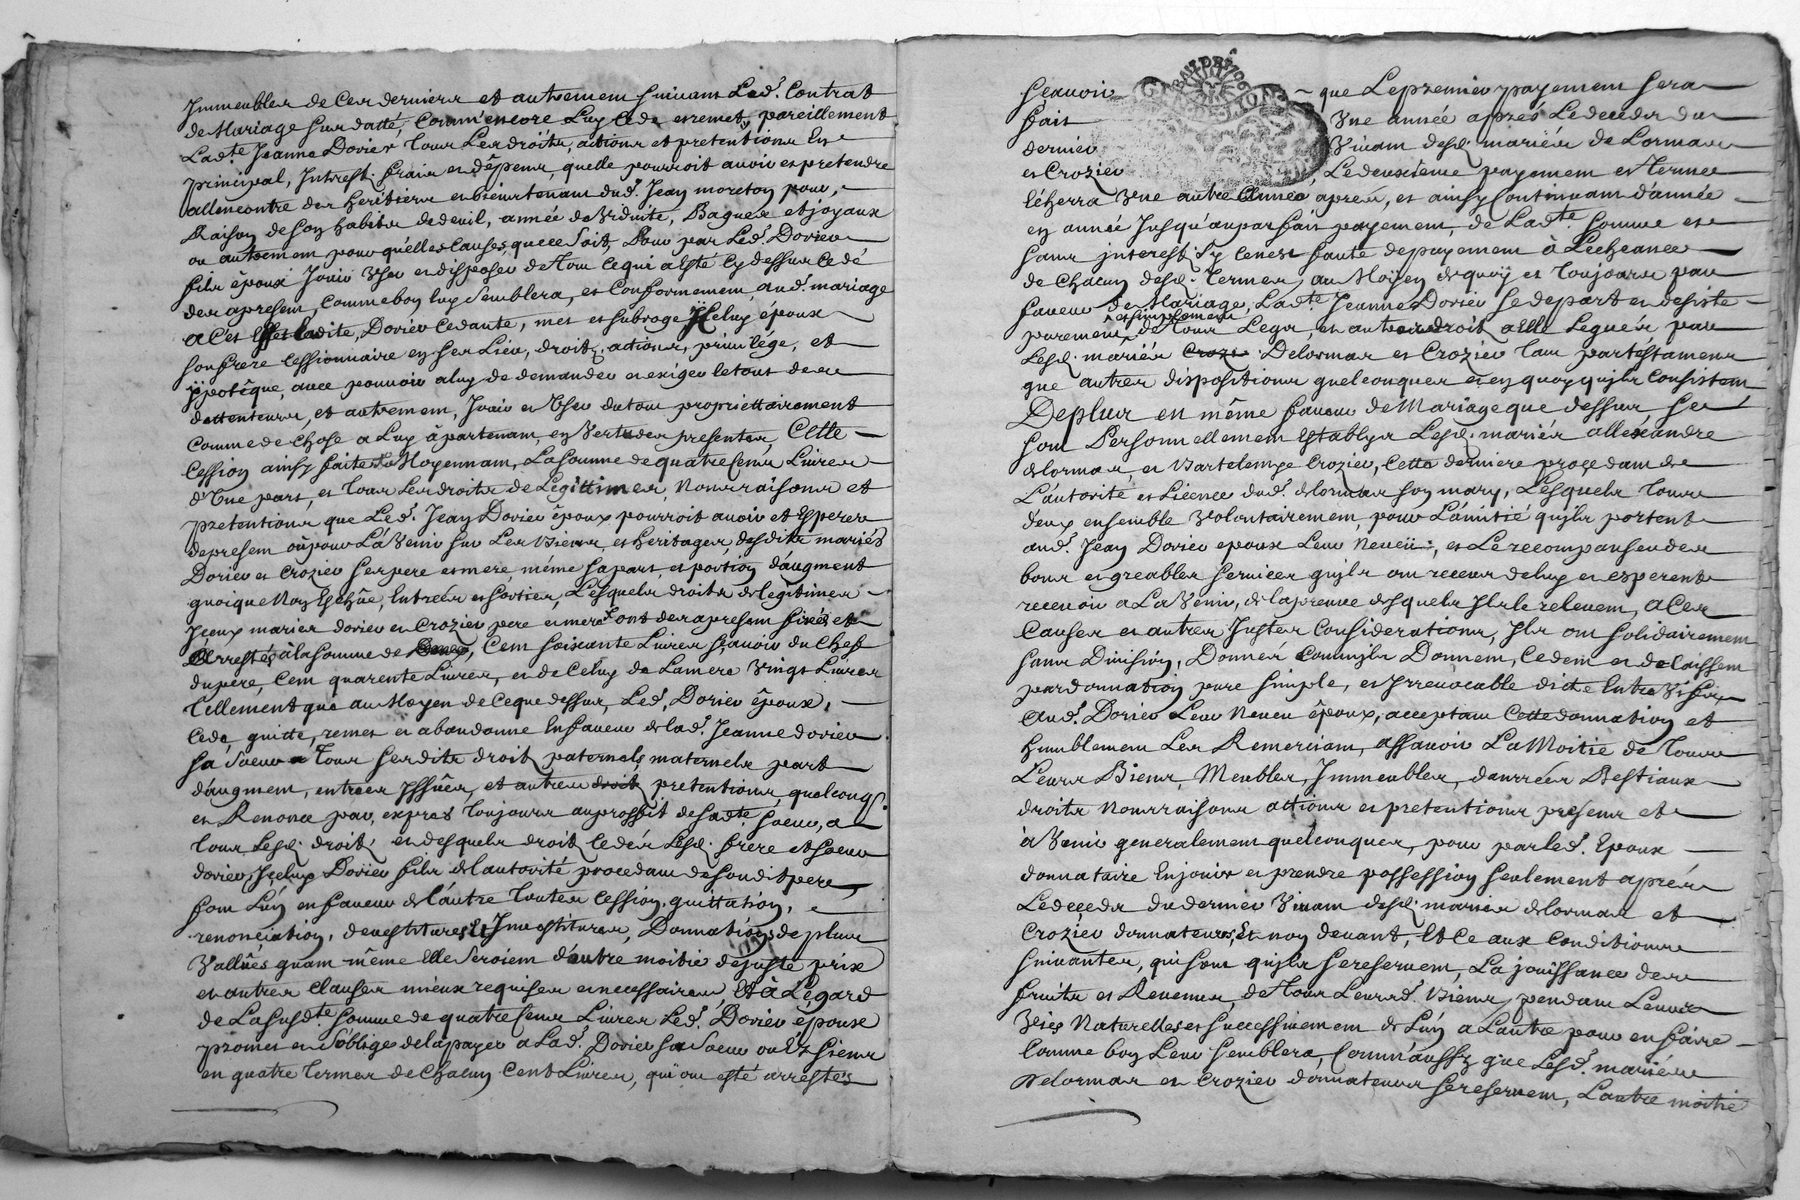 Immeubles de Ces derniers et autrement suivant Led. Contrat
de Mariage sus datté, Comm'encore Luy Cede et remet pareillement
Lad.te Jeanne Dorier tous Les droits, actions et pretentions En
principal, Interest, frais et dêpens, quelle pourroit avoir et pretendre
allencontre des heritiers et bientenants dud. Jean moreton pour
Raison de son habits de deuil, année de Viduité, Bagues et joyaux
ou autrement pour quelles Causes que ce Soit, Pour par Led. Dorier
fils époux Jouir User et disposer de Tout Ce qui a Esté Cy dessus Cedé
des apresent, Comme bon luy Semblera, et Conformement, aud. mariage
a Ces Ladite, Dorier Cedante, met et subroge Iceluy époux
son frere Cessionnaire en ses Lieu, droit, actions, privilége, et
ypotêque, avec pouvoir a luy de demander et exiger le tout des
dettenteurs, et autrement, Jouir et User du tout proprietairement
Comme de Chose a Luy apartenant, en Vertu des presentes, Cette
Cession ainsy faite Moyennant, La somme de quatre Cents Livres
d'Une part, et Tous Les droits de Legittimes, Nourraisons et
pretentions que Led. Jean Dorier êpoux pourroit avoir et Esperer
de present ou pour L'a Venir sur Les Biens, et heritages, desdits mariés
Dorier et Crozier ses pere et mere, même sa part, et portion d'augment
quoique Non Eschûe, Entrées et sorties, Lesquels droits de legitimes
Iceux mariés dorier et Crozier pere et mere ont des apresent fixés et
Arrestés à la somme de Cent soixante Livres sçavoir du Chef
du pere, Cent quarente Livres, et de Celuy de La mere Vingt Livres
Tellement que au Moyen de Ce que dessus, Led. Dorier êpoux,
Cede, quitte, remet et abandonne En faveur de lad. Jeanne dorier
sa Soeur Tous sesdits droit paternels, maternels part
d'augment, entrées Issües, et autres droits pretentions, quelconqs.
et Renonce par, expres Toujours au proffit de sad.te soeur, a
tous Lesd. droit, et desquels droit Cedés Lesd. frere et soeur
dorier, Iceluy Dorier fils de l'autorité procedant de son dit pere,
font L'un en faveur de l'autre Toutes Cession, quittation,
renonciation, devestitures, Et Investitures, Donnations de plus
Vallües quant même Elle Seroient d'autre moitié de juste prix
et autres Clauses mieux requises et necessaires, Et à L'egard
de La susd.te somme de quatre Cents Livres Led. Dorier époux
promet et S'obliges de la payer a Lad. Dorier sa Soeur ou Es siens
en quatre Termes de Chacun Cent Livres, qui ont esté arrestés
sçavoir que Le premier payement sera
fait Une année aprés Le deceds du
dernier Vivant desd. mariés de Lormas
et Crozier, Le deuxième payement et Terme
écherra Une autre Année apres, et ainsy Continuant d'année
en année Jusqu'au parfait payement, de Lad.te somme et
sans interest Sy Cenest faute de payement a L'echeance
de Chacun desd. Termes, au Moÿen de quoy et Toujours par
faveur de Mariage, Lad.te Jeanne Dorier se depart et desiste
purement et simplement de Tous Legs, et autres droit a Elle Legués par
Lesd. mariés Crozi Delormas et Crozier Tant par testament
que autres dispositions quelconques et en quoy qu'ils Consistent
De plus en même faveur de Mariage que dessus, se
sont Personnellement Establys Lesd. mariés allexandre
delormas, et Bartelemye Crozier, Cette derniere procedant de
L'autorité et Licence dud. delormas son mary, Lesquels Tous
deux ensemble Volontairement, pour L'amitié qu'ils portent
aud. Jean Dorier epoux Leur Neveü, et Le recompenser des
bons et greables services qu'ils ont receus de luy et esperent
recevoir a La Venir, de la preuve desquels Ils le relevent, a Ces
Causes et autres Justes Considerations, Ils ont solidairement
sans Division, Donnés Comm'ils Donnent, Cedent et delaissent
par donnation pure simple, et Irrevocable dicte Entre Vifs,
Aud. Dorier Leur Neveu êpoux, acceptant Cette donnation et
humblement Les Remerciant, assavoir La Moitié de Tous
Leurs Biens, Meubles, Immeubles, danrrées Bestiaux
droits Nourraisons actions et pretentions presens et
à Venir generalement quelconques, pour par led. Epoux
donnataire En jouir et prendre possession seulement aprés
Le deceds du dernier Vivant desd. mariés delormas et
Crozier donnateurs, Et non devant, Et Ce aux Conditions
suivantes, qui sont qu'ils se reservent, La jouissance des
fruits et Revenus, de Tous Leursd. Biens, pendant Leurs
Vies Naturelles et successivement de L'un a L'autre pour en faire
Comme bon Leur semblera, Comm'aussy que Lesd. mariés
Delormas et Crozier donnateurs se reservent, L'autre moitié